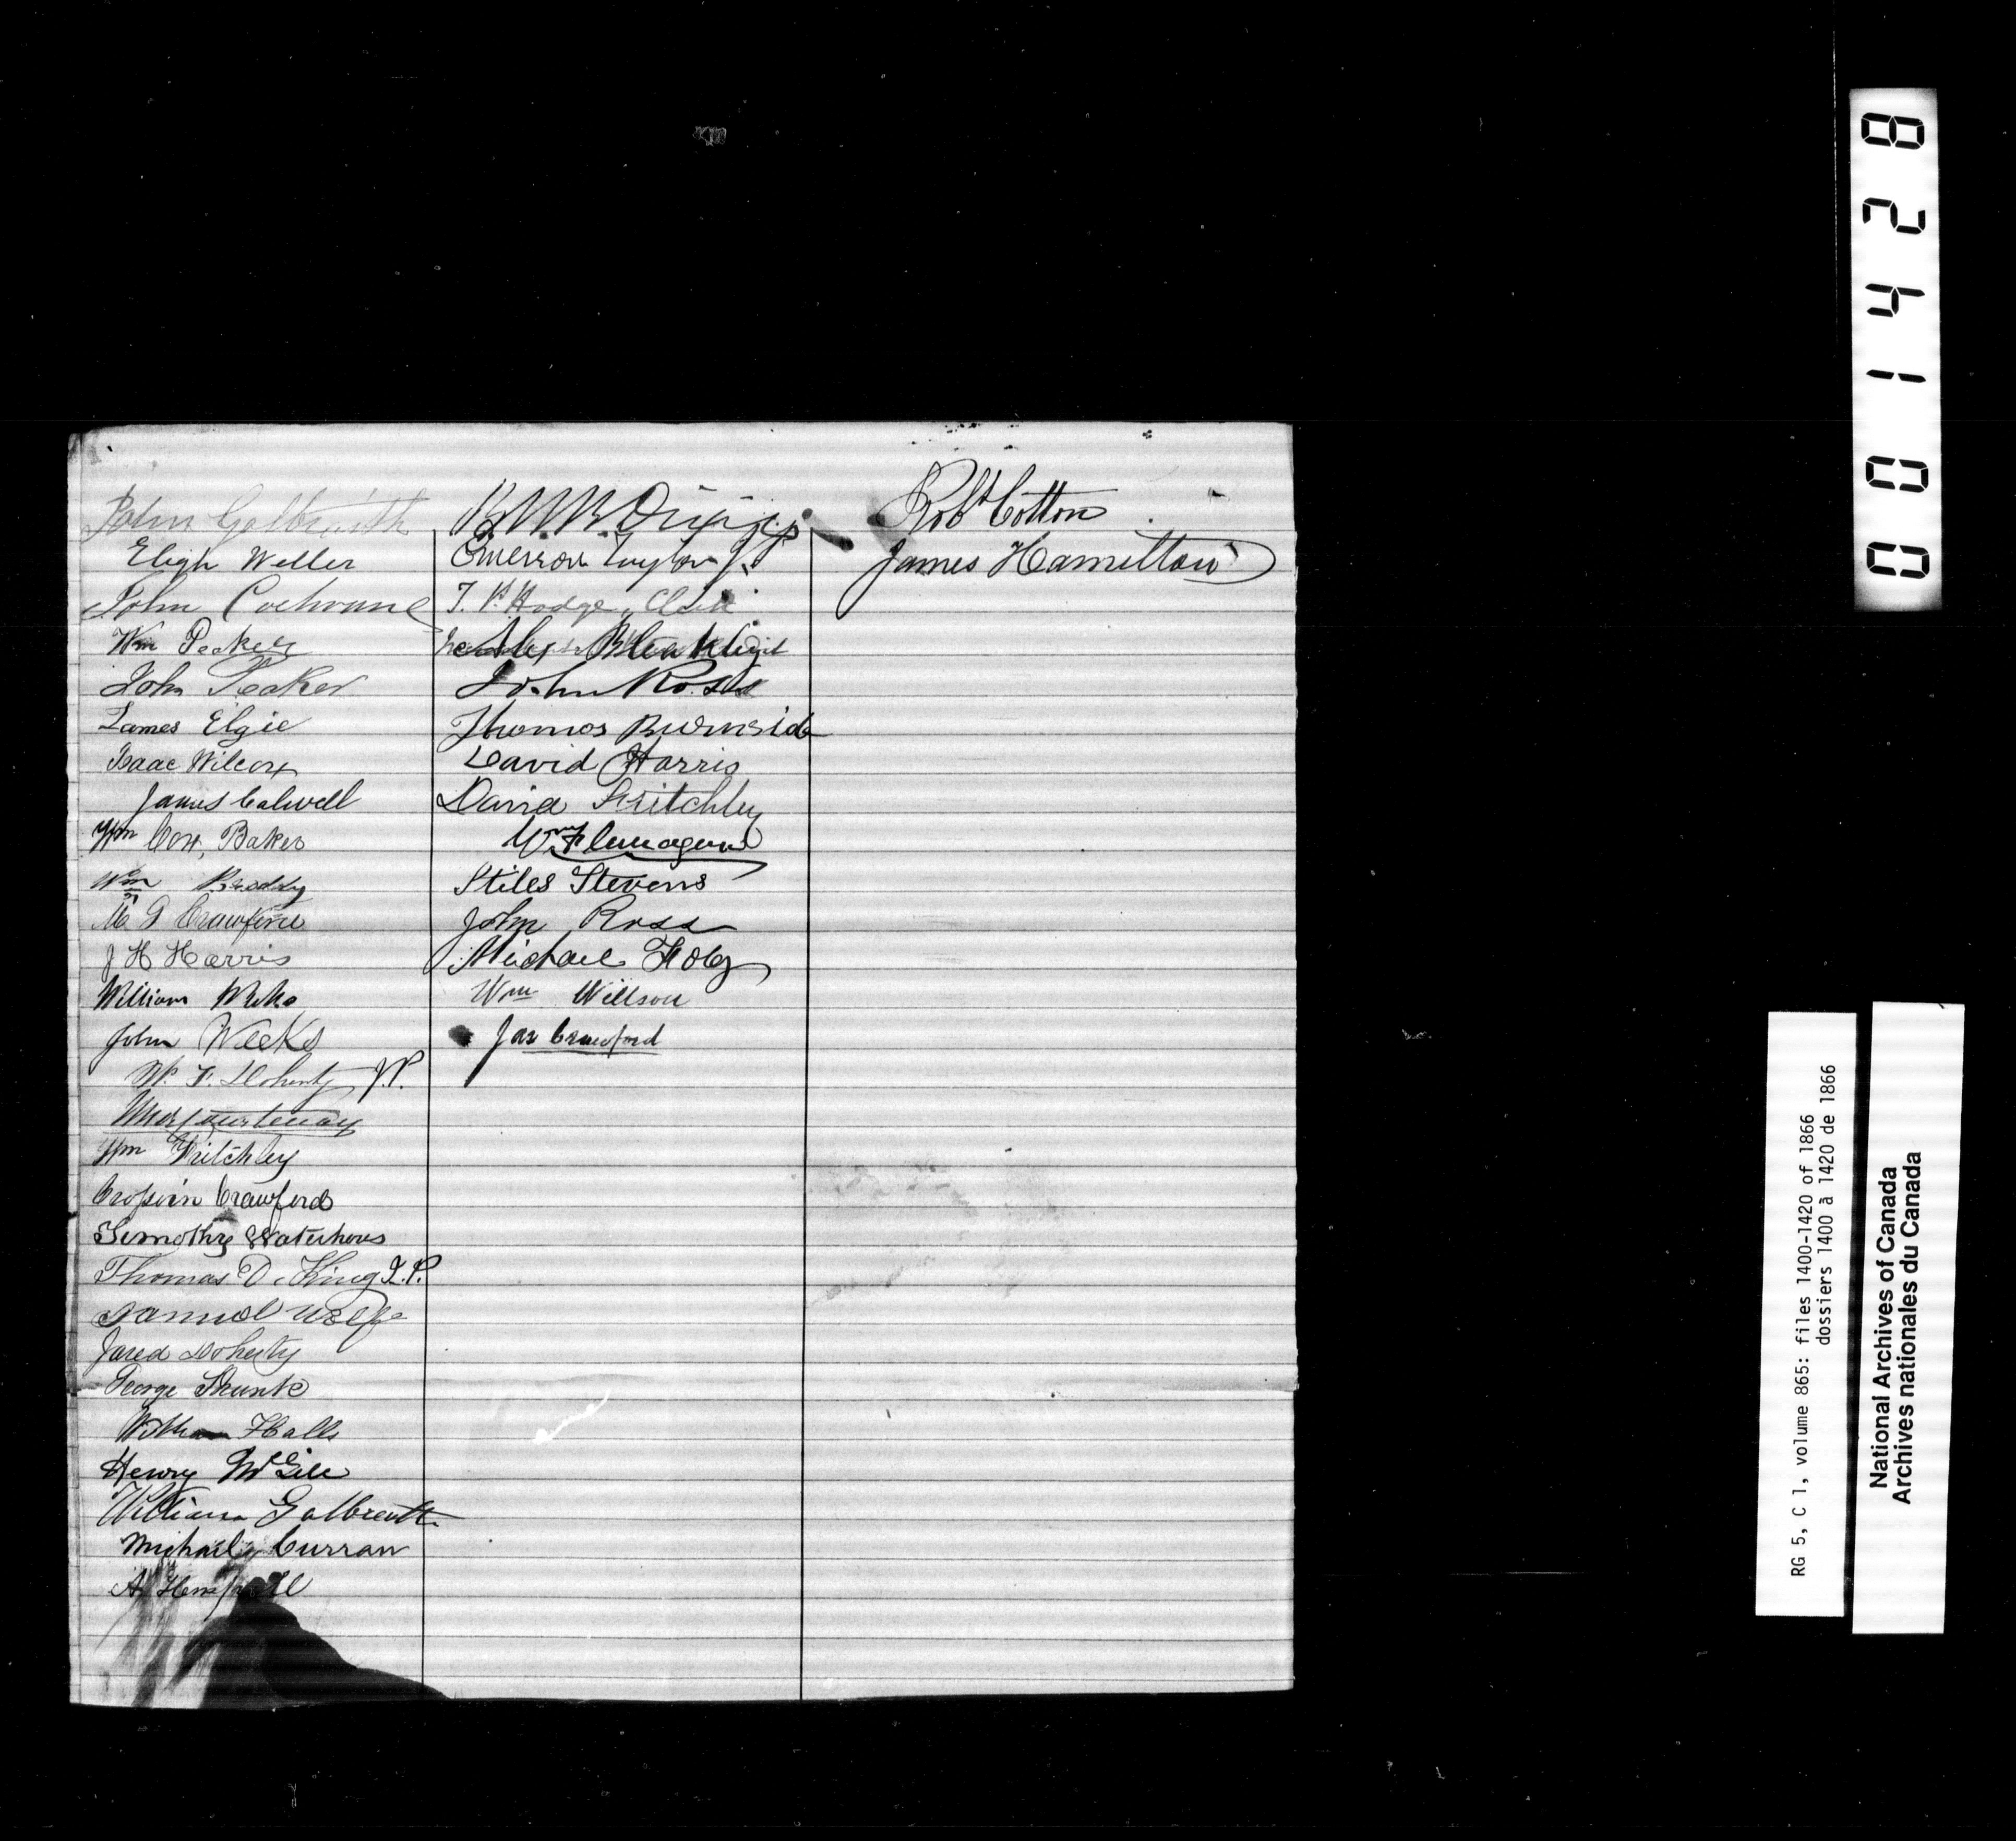 John Galbraith
Eligh Weller
John Cochrane
Wm Peaker
John Peaker
James Elgie
Isaac Wilcox
James Calwell
Wm Cox, Baker
Wm Braddy
M G Crawford
J H Harris
William Weks
John Weeks
W. F. Doherty J.P.
Courtenay
Wm Fritchley
Crosswin Crawford
Timothy Waterhous
Thomas D. King J.P.
Samuel Wolfe
Jared Doherty
George Shunk
William Halls
Henry McGill
William Galbreath
Michael Curran
A Hemphill
Emerson Taylor
T. P. Hodge, Clerk
Bleakley
John Ross
Thomas Burnside
David Harris
David Fritchley
Wm Flanagan
Stiles Stevens
John Ross
Michael Foley
Wm Willson
Jas Crawford
Robt Cotton
James Hamilton
001428
RG 5, C 1, volume 865: files 1400-1420 of 1866
dossiers 1400 à 1420 de 1866
National Archives of Canada
Archives nationales du Canada